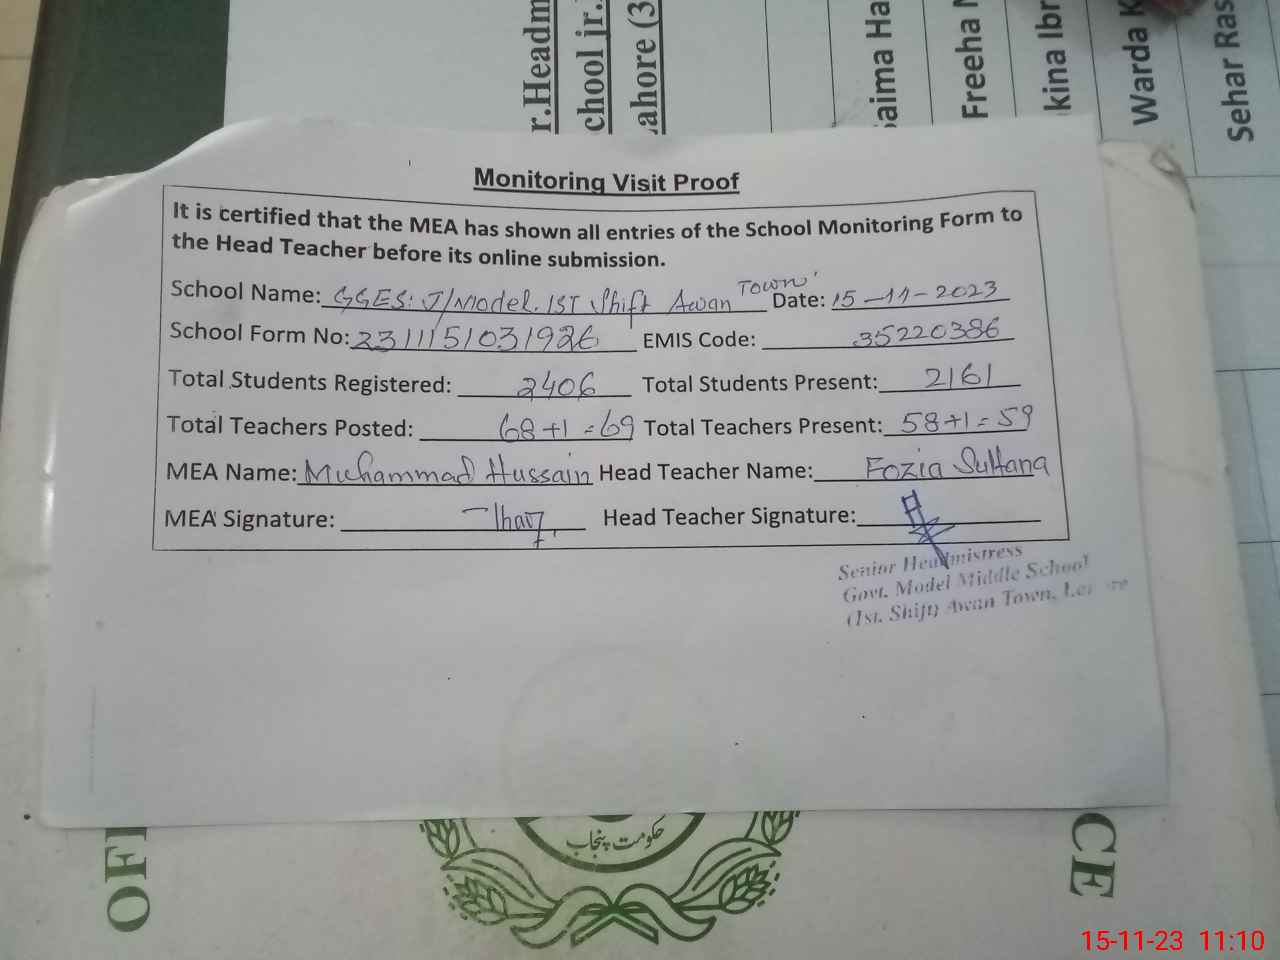 r.Headm
chool jr.
ahore (3
aima Ha
Freeha
kina Ibr
Warda K
Sehar Ras
Monitoring Visit Proof
It is certified that the MEA has shown all entries of the School Monitoring Form to
the Head Teacher before its online submission.
School Name: GGES: J/Model. 1ST Shift Awan Town Date: 15-11-2023
School Form No: 231115/031926 EMIS Code: 35220386
Total Students Registered: 2406 Total Students Present: 2161
Total Teachers Posted: 68+1=69 Total Teachers Present: 58+1=59
MEA Name: Muhammad Hussain Head Teacher Name: Fozia Sultana
MEA Signature: Head Teacher Signature:
Senior Headmistress
Govt. Model Middle School
(1st. Shift) Awan Town,
حکومت پنجاب
OFF CE
15-11-23 11:10